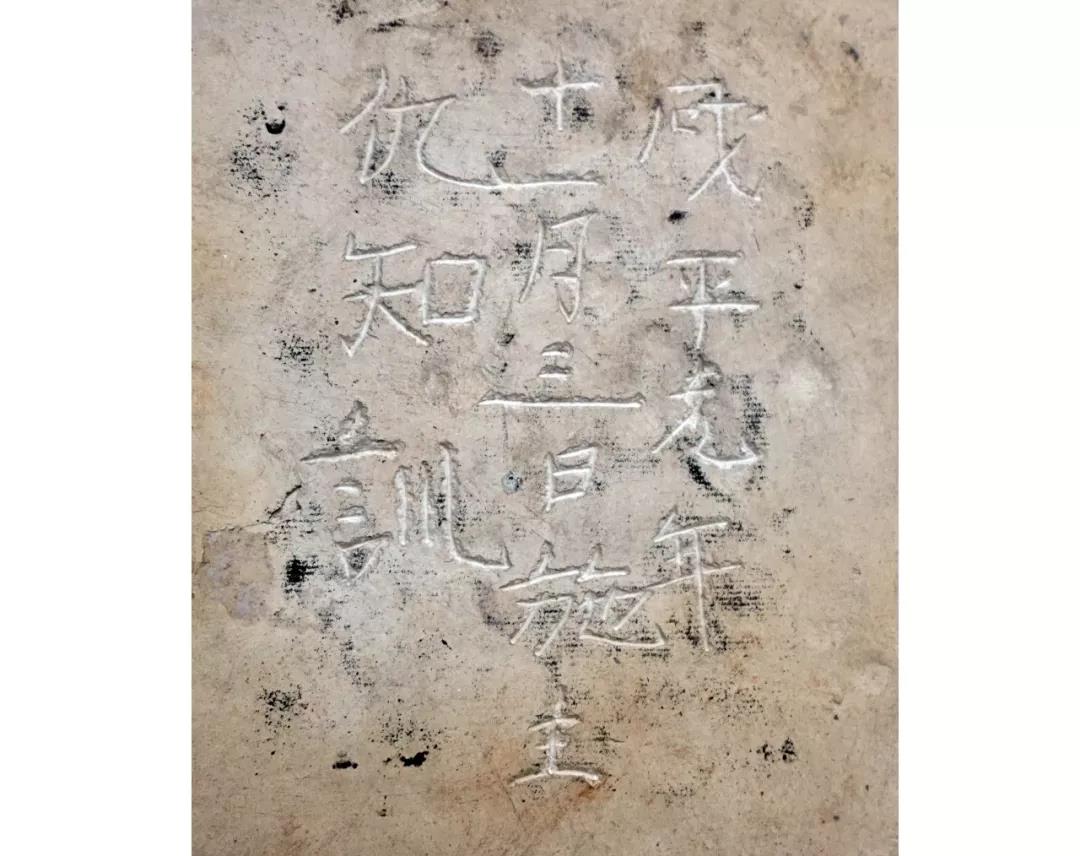 咸平元年
十一月三日施主
仇知訓